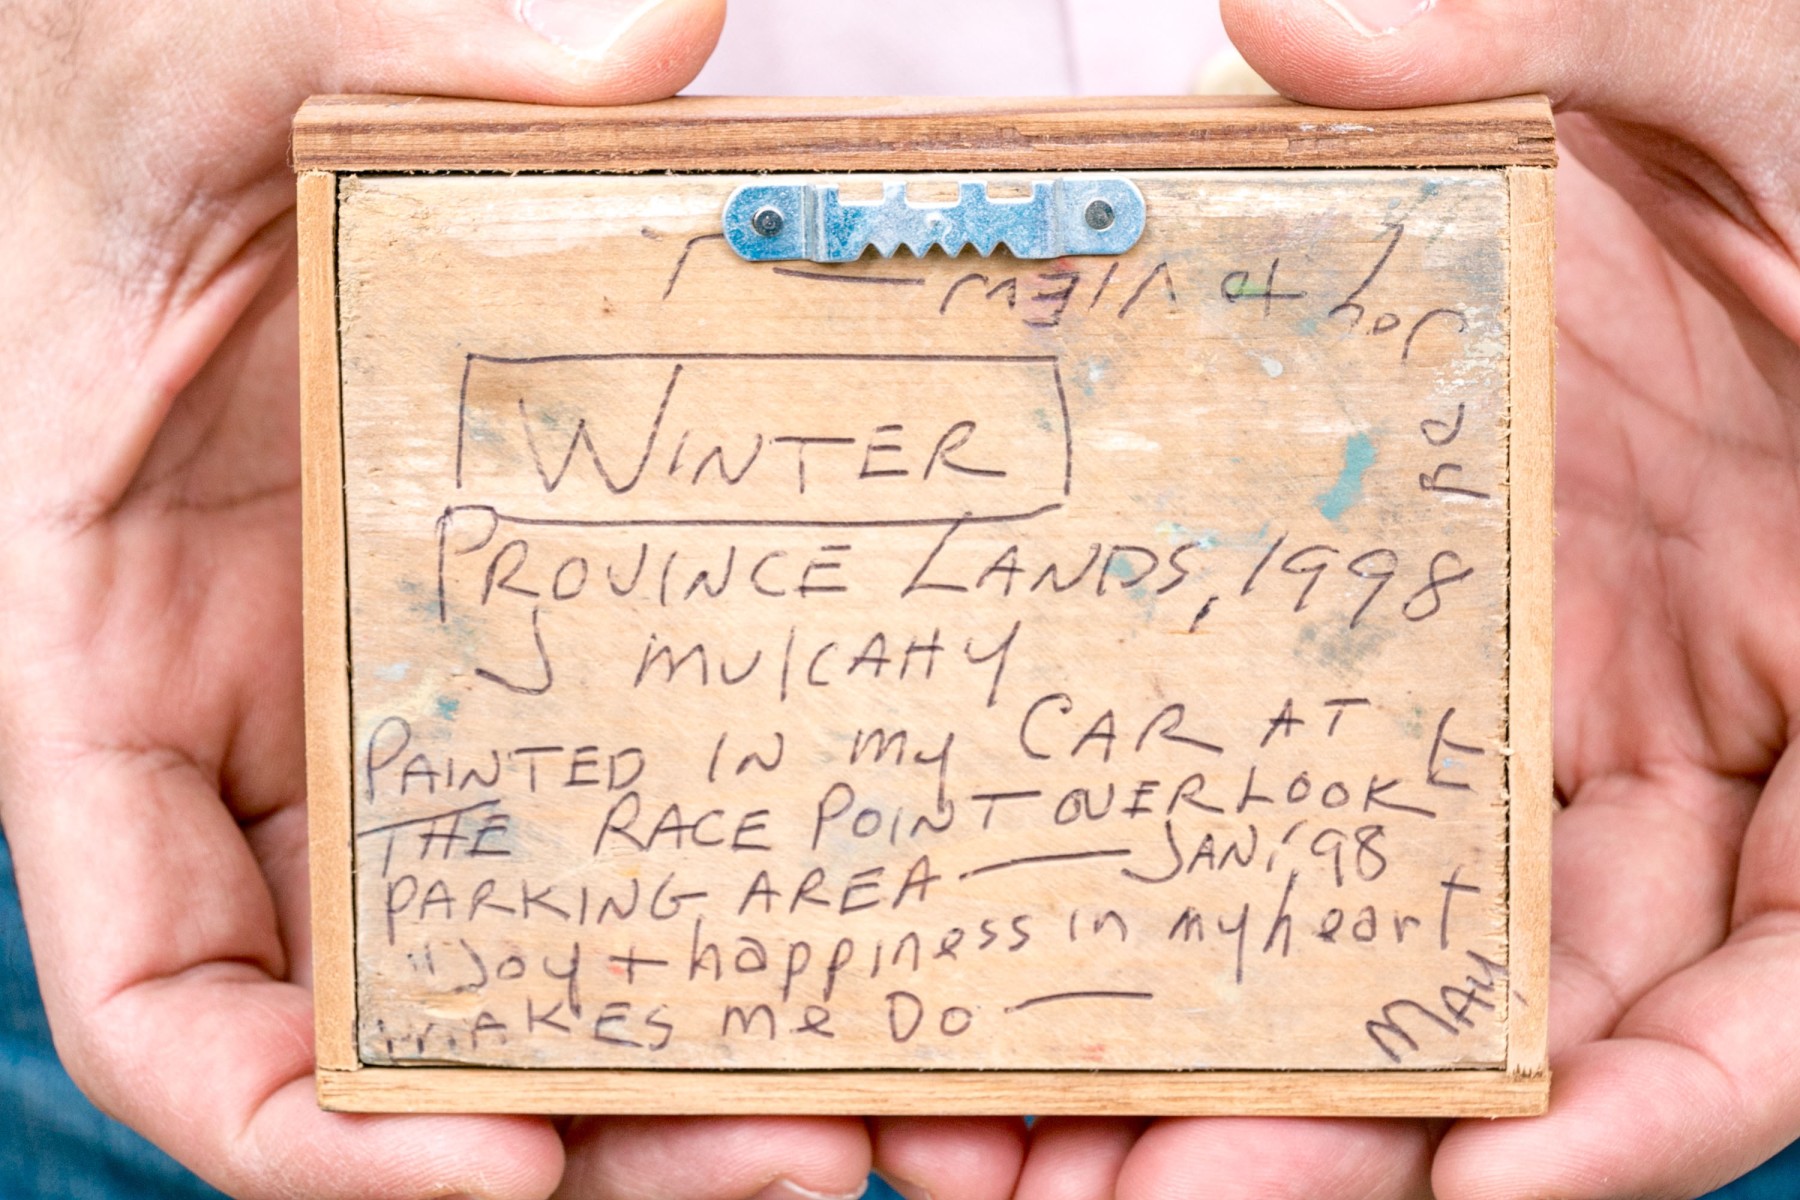 WINTER
PROVINCE LANDS, 1998
J MULCAHY
PAINTED IN MY CAR AT
THE RACE POINT OVERLOOK
PARKING AREA — JAN, '98
"Joy + happiness in my heart
MAKES me DO —
MAY,
VIEW —